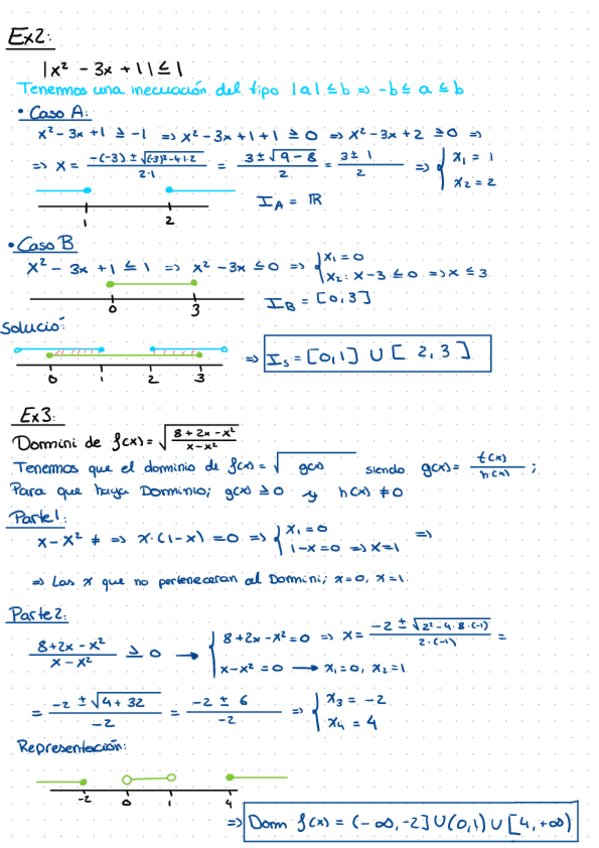 Ex2:
|x² - 3x + 1| ≤ 1
Tenemos una inecuación del tipo |a| ≤ b ⇒ -b ≤ a ≤ b
• Caso A:
x² - 3x + 1 ≥ -1 ⇒ x² - 3x + 1 + 1 ≥ 0 ⇒ x² - 3x + 2 ≥ 0 ⇒
⇒ x = (-(-3) ± √((-3)² - 4·1·2)) / (2·1) = (3 ± √(9 - 8)) / 2 = (3 ± 1) / 2 ⇒ { x₁ = 1
x₂ = 2
1 2
I_A = ℝ
• Caso B
x² - 3x + 1 ≤ 1 ⇒ x² - 3x ≤ 0 ⇒ { x₁ = 0
x₂: x - 3 ≤ 0 ⇒ x ≤ 3
0 3
I_B = [0, 3]
Solució:
0 1 2 3
⇒ I_s = [0, 1] ∪ [2, 3]
Ex3:
Domini de f(x) = √((8 + 2x - x²) / (x - x²))
Tenemos que el dominio de f(x) = √g(x) siendo g(x) = t(x) / h(x) ;
Para que haya Dominio; g(x) ≥ 0 y h(x) ≠ 0
Parte 1:
x - x² ≠ ⇒ x·(1 - x) = 0 ⇒ { x₁ = 0
1 - x = 0 ⇒ x = 1
⇒
⇒ Las x que no perteneceran al Domini; x = 0, x = 1.
Parte 2:
(8 + 2x - x²) / (x - x²) ≥ 0 → { 8 + 2x - x² = 0 ⇒ x = (-2 ± √(2² - 4·8·(-1))) / (2·(-1)) =
x - x² = 0 → x₁ = 0, x₂ = 1
= (-2 ± √(4 + 32)) / -2 = (-2 ± 6) / -2 ⇒ { x₃ = -2
x₄ = 4
Representación:
-2 0 1 4
⇒ Dom f(x) = (-∞, -2] ∪ (0, 1) ∪ [4, +∞)